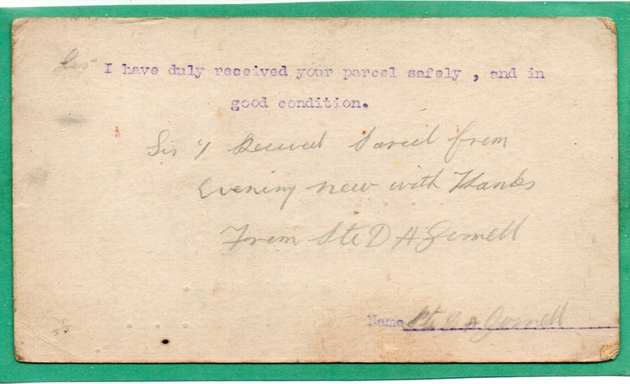 I have duly received your parcel safely , and in
good condition.
Sir I Received Parcel from
Evening new with Thanks
From Pte D A Gemmell
Name Pte D A Gemmell